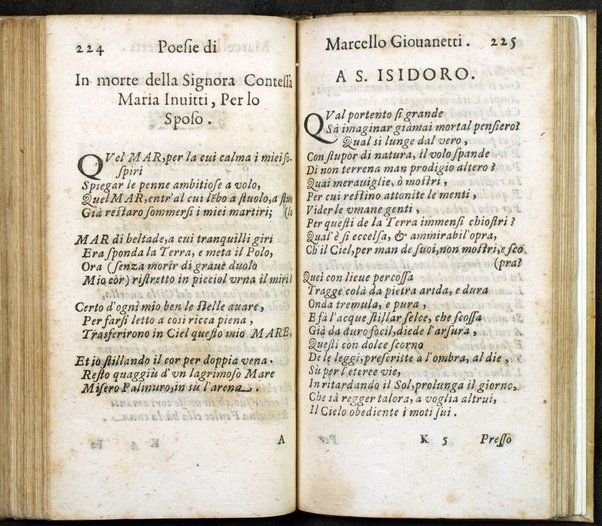 224 Poesie di
In morte della Signora Contessa
Maria Inuitti, Per lo
Sposo.
QVel MAR, per la cui calma i miei so-
spiri
Spiegar le penne ambitiose a volo,
Quel MAR, entr'al cui lebo a stuolo, a stuo
Già restaro sommersi i miei martiri; (lo
MAR di beltade, a cui tranquilli giri
Era sponda la Terra, e meta il Polo,
Ora (senza morir di graue duolo
Mio cor) ristretto in picciol vrna il miri?
Certo d'ogni mio ben le stelle auare,
Per farsi letto a così ricca piena,
Trasferirono in Ciel questo mio MARE,
Et io stillando il cor per doppia vena.
Resto quaggiù d'vn lagrimoso Mare
Misero Palinuro, in sù l'arena.
K 4 A
Marcello Giouanetti. 225
A S. ISIDORO.
QVal portento sì grande
Sà imaginar giamai mortal pensiero?
Qual sì lunge dal vero,
Con stupor di natura, il volo spande
Di non terrena man prodigio altero?
Quai merauiglie, ò mostri,
Per cui restino attonite le menti,
Vider le vmane genti,
Per questi de la Terra immensi chiostri?
Qual'è sì eccelsa, & ammirabil'opra,
Ch'il Ciel, per man de suoi, non mostri, e sco
(pra?
Quei con lieue percossa
Tragge colà da pietra arida, e dura
Onda tremula, e pura,
E fà l'acque stillar selce, che scossa
Già da duro focil, diede l'arsura,
Questi con dolce scorno
De le leggi, prescritte a l'ombra, al die,
Sù per l'eteree vie,
In ritardando il Sol, prolunga il giorno,
Che sà regger talora, a voglia altrui,
Il Cielo obediente i moti sui.
K 5 Presso